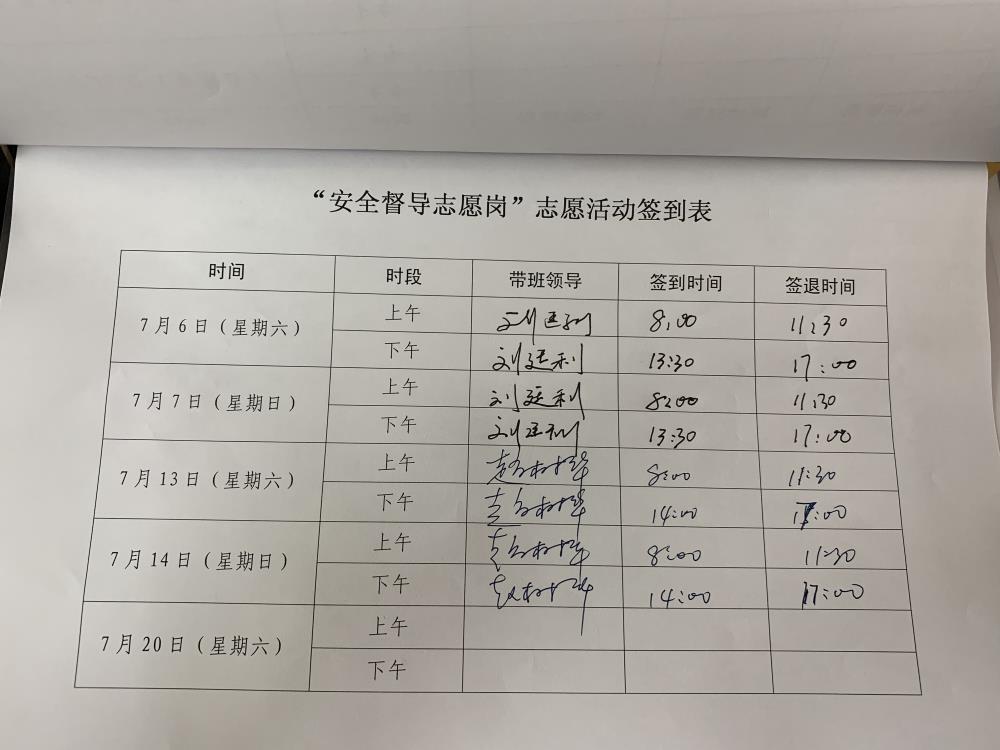 “安全督导志愿岗”志愿活动签到表
时间 时段 带班领导 签到时间 签退时间
7月6日（星期六） 上午 刘廷利 8:00 11:30
下午 刘廷利 13:30 17:00
7月7日（星期日） 上午 刘廷利 8:00 11:30
下午 刘廷利 13:30 17:00
7月13日（星期六） 上午 8:00 11:30
下午 14:00 17:00
7月14日（星期日） 上午 8:00 11:30
下午 14:00 17:00
7月20日（星期六） 上午
下午